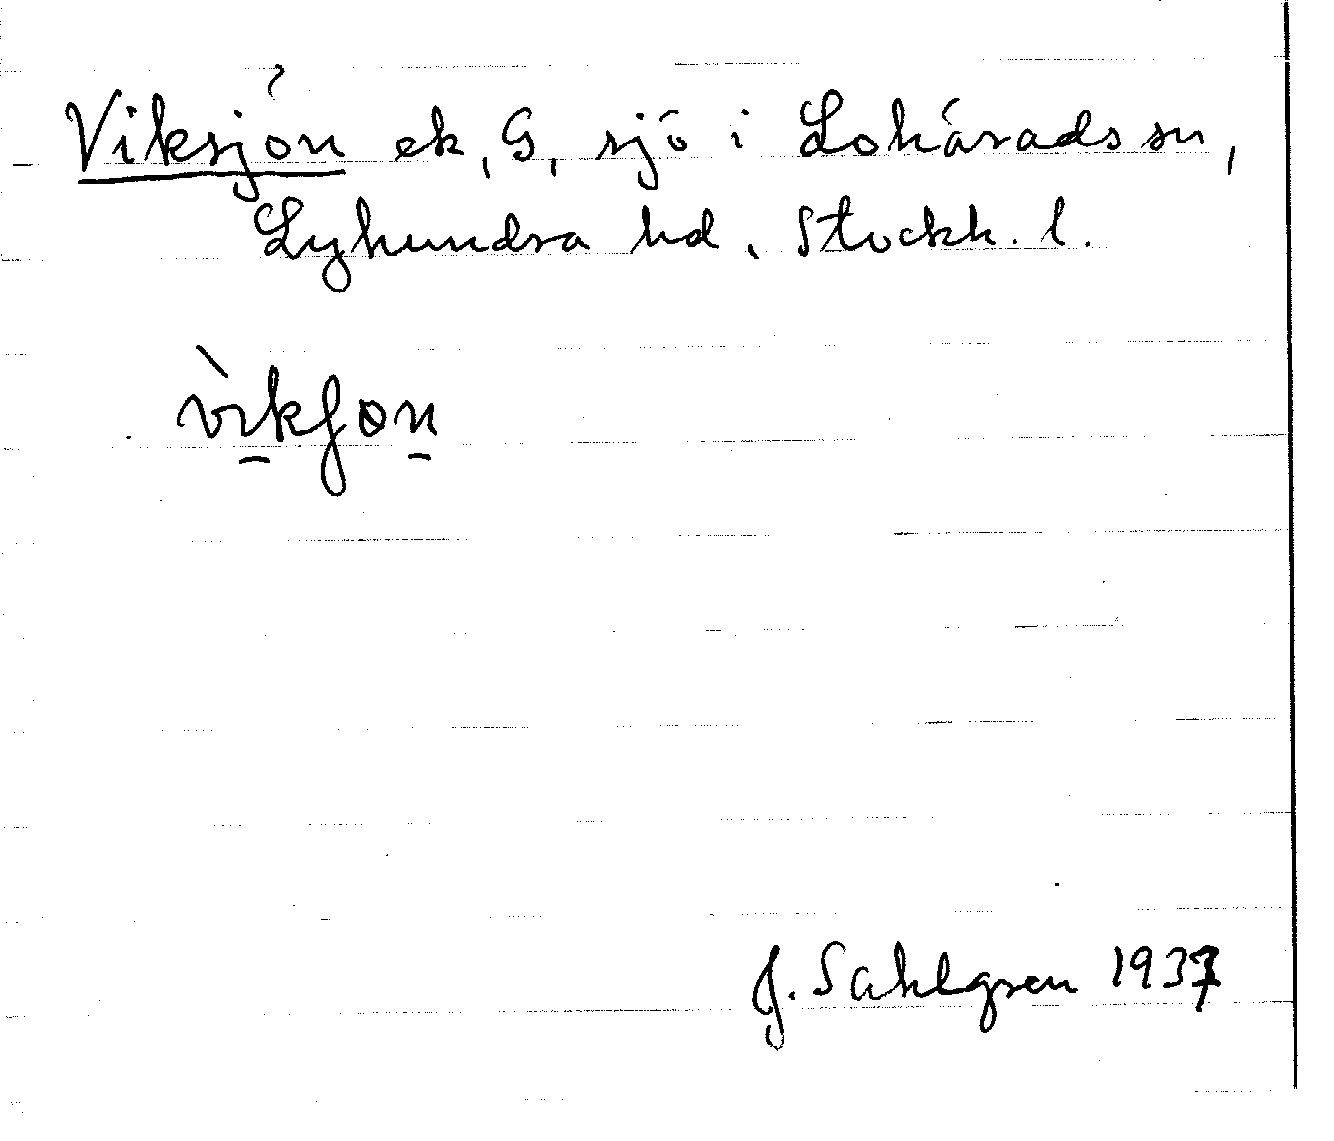 Viksjön ek, G, sjö i Lohärads sn,
Lyhundra hd, Stockh. l.
vìkʃøn
J. Sahlgren 1937